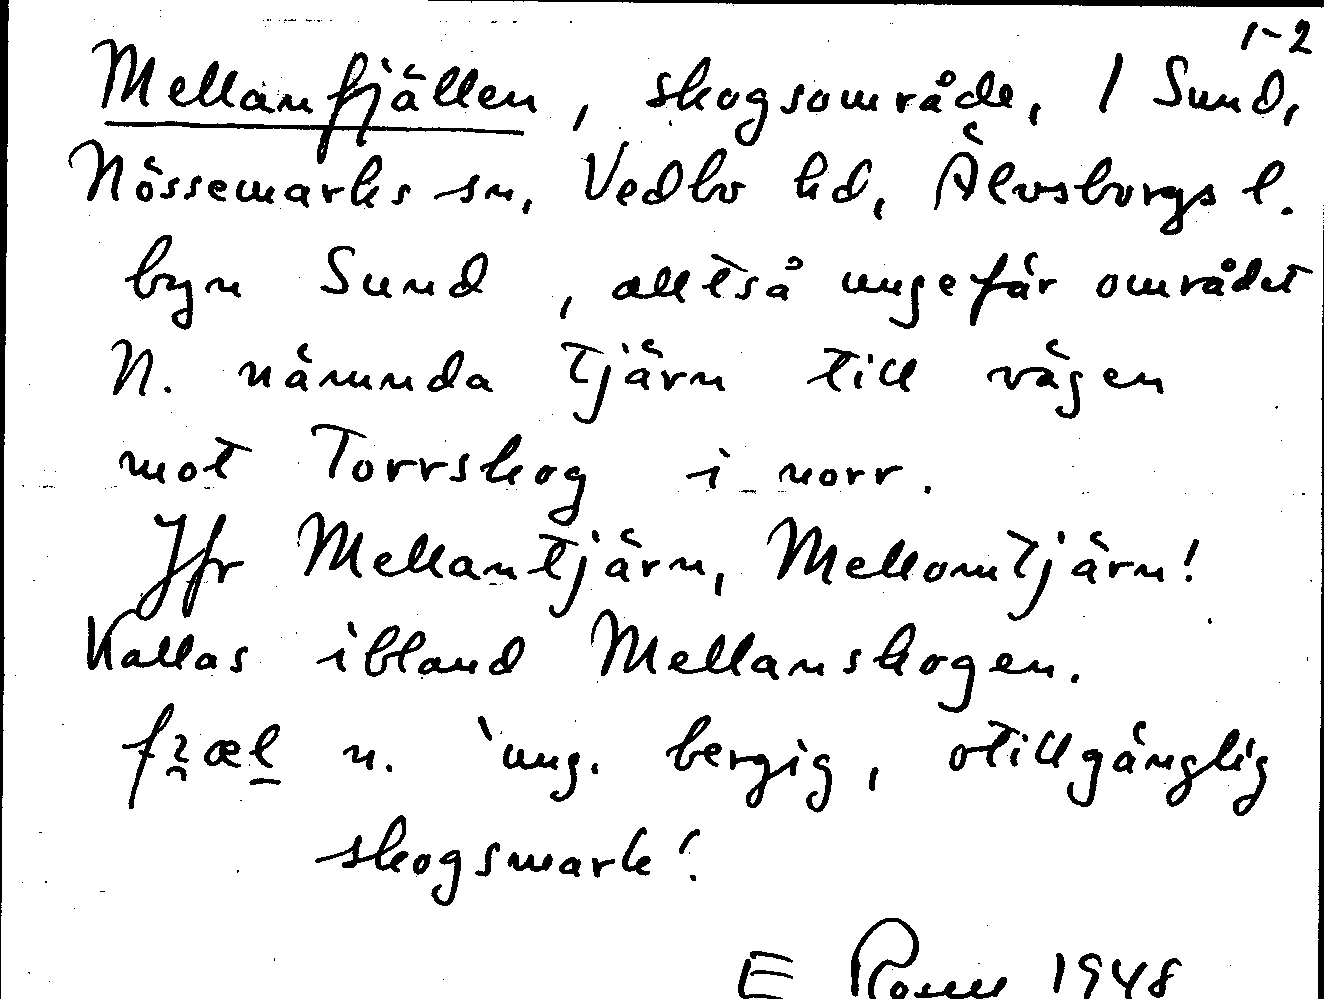 1-2
Mellanfjällen, skogsområde, / Sund,
Nössemarks sn, Vedbo hd, Älvsborgs l.
byn Sund, alltså ungefär området
N. nämnda tjärn till vägen
mot Torrskog i norr.
Jfr Mellantjärn, Mellomtjärn!
Kallas ibland Mellanskogen.
n. 'ung. bergig, otillgänglig
skogsmark'.
E 1948